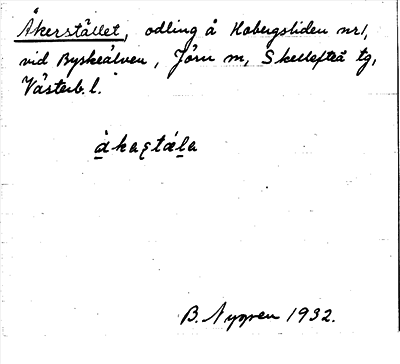 Åkerstället, odling å Hobergsliden nr 1,
vid Byskeälven, Jörn m, Skellefteå tg,
Västerb. l.
åkaʂtäla
B. Nygren 1932.